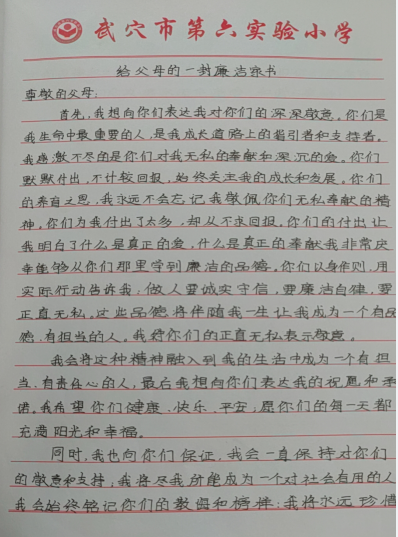 武穴市第六实验小学
给父母的一封廉洁家书
尊敬的父母:
首先,我想向你们表达我对你们的深深敬意。你们是
我生命中最重要的人,是我成长道路上的指引者和支持者。
我感激不尽的是你们对我无私的奉献和深沉的爱。你们
默默付出,不计较回报,始终关注我的成长和发展。你们
的养育之恩,我永远不会忘记我敬佩你们无私奉献的精
神。你们为我付出了太多,却从不求回报。你们的付出让
我明白了什么是真正的爱,什么是真正的奉献我非常庆
幸能够从你们那里学到廉洁的品德。你们以身作则,用
实际行动告诉我,做人要诚实守信,要廉洁自律,要
正直无私。这些品德将伴随我一生让我成为一个有品
德,有担当的人。我对你们的正直无私表示敬意。
我会将这种精神融入到我的生活中成为一个有担
当,有责任心的人,最后我想向你们表达我的祝愿和承
诺。我希望你们健康、快乐、平安,愿你们的每一天都
充满阳光和幸福。
同时,我也向你们保证,我会一直保持对你们
的敬意和支持,我将尽我所能成为一个对社会有用的人
我会始终铭记你们的教诲和榜样,我将永远珍惜